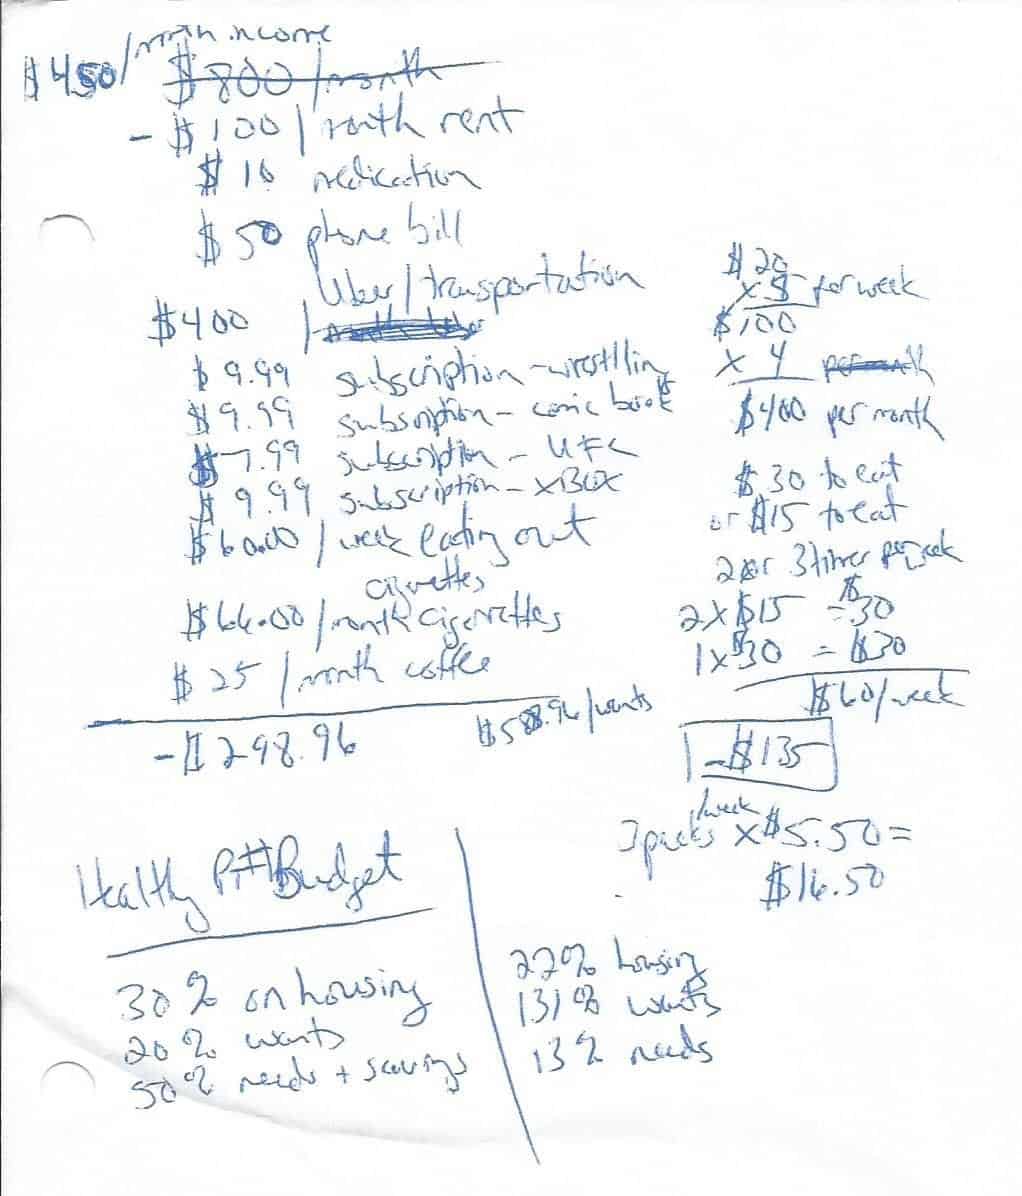 $450/month income
$800/month
- $100/month rent
$10 medication
$50 phone bill
Uber/transportation
$400 /
$9.99 subscription - wrestllin
$9.99 subscription - comic book
$7.99 subscription - UFC
$9.99 subscription - XBOX
$60.00/week eating out
cigarettes
$66.00/month cigarettes
$25/month coffee
-$298.96
$588.96/wants
$20
x 5 per week
$100
x 4 per month
$400 per month
$30 to eat
or $15 to eat
2 or 3 times per week
2 x $15 = $30
1 x $30 = $30
$60/week
-$135
3 packs /week x $5.50 =
$16.50
Healthy Budget
30% on housing
20% wants
50% needs + savings
22% housing
131% wants
13% needs